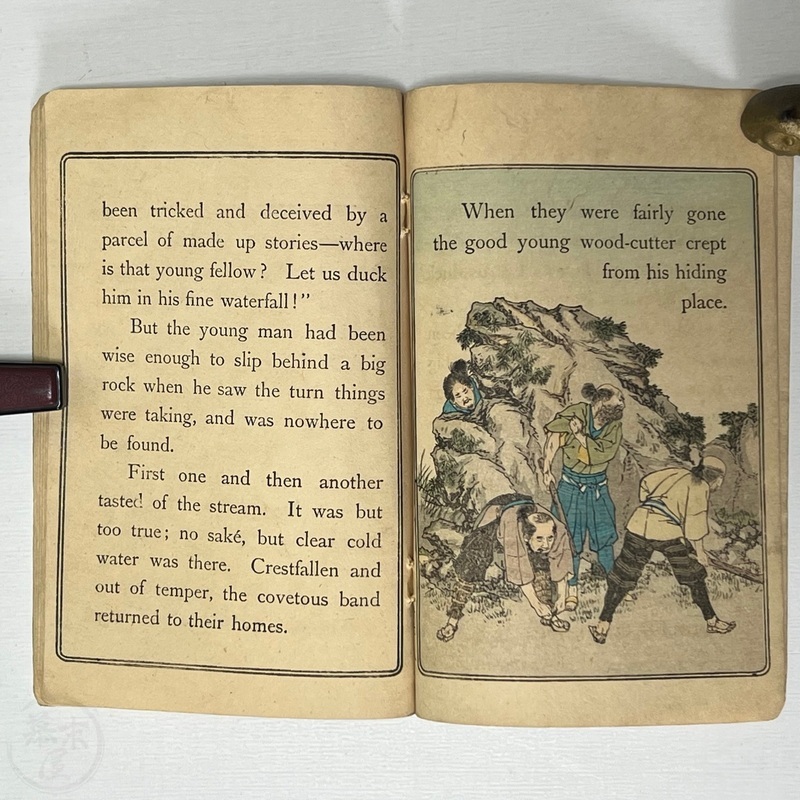 been tricked and deceived by a
parcel of made up stories—where
is that young fellow? Let us duck
him in his fine waterfall!”
But the young man had been
wise enough to slip behind a big
rock when he saw the turn things
were taking, and was nowhere to
be found.
First one and then another
tasted of the stream. It was but
too true; no saké, but clear cold
water was there. Crestfallen and
out of temper, the covetous band
returned to their homes.
When they were fairly gone
the good young wood-cutter crept
from his hiding
place.